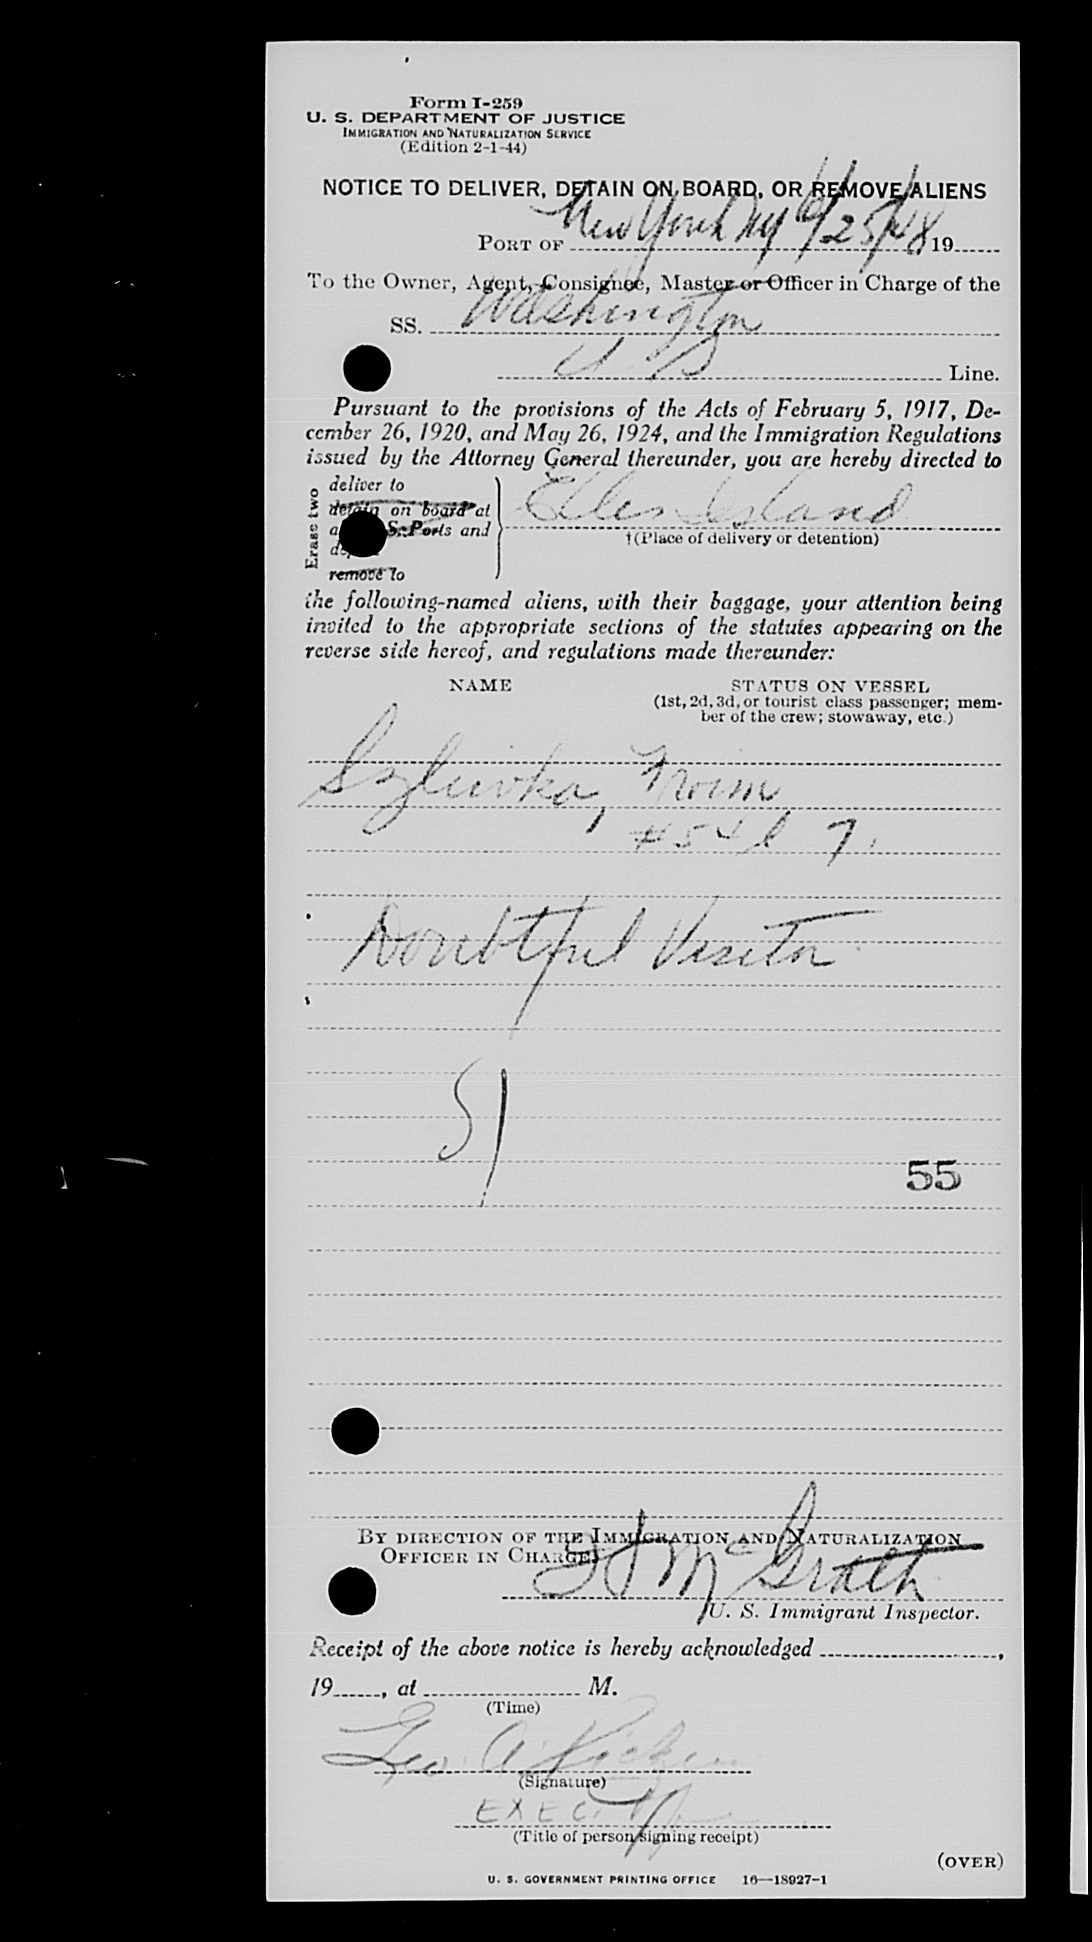 Form I-259
U. S. DEPARTMENT OF JUSTICE
IMMIGRATION AND NATURALIZATION SERVICE
(Edition 2-1-44)
NOTICE TO DELIVER, DETAIN ON BOARD, OR REMOVE ALIENS
PORT OF New York NY 6/25/48 19
To the Owner, Agent, Consignee, Master or Officer in Charge of the
SS. Washington
U S Line.
Pursuant to the provisions of the Acts of February 5, 1917, De-
cember 26, 1920, and May 26, 1924, and the Immigration Regulations
issued by the Attorney General thereunder, you are hereby directed to
Erase two
deliver to
detain on board at
S. Ports and
remove to
Ellis Island
†(Place of delivery or detention)
the following-named aliens, with their baggage, your attention being
invited to the appropriate sections of the statutes appearing on the
reverse side hereof, and regulations made thereunder:
NAME
STATUS ON VESSEL
(1st, 2d, 3d, or tourist class passenger; mem-
ber of the crew; stowaway, etc.)
Doubtful Visitor
55
BY DIRECTION OF THE IMMIGRATION AND NATURALIZATION
OFFICER IN CHARGE
McGrath
U. S. Immigrant Inspector.
Receipt of the above notice is hereby acknowledged ,
19 , at M.
(Time)
Geo. A.
(Signature)
EXEC.
(Title of person signing receipt)
(OVER)
U. S. GOVERNMENT PRINTING OFFICE 16—18927-1